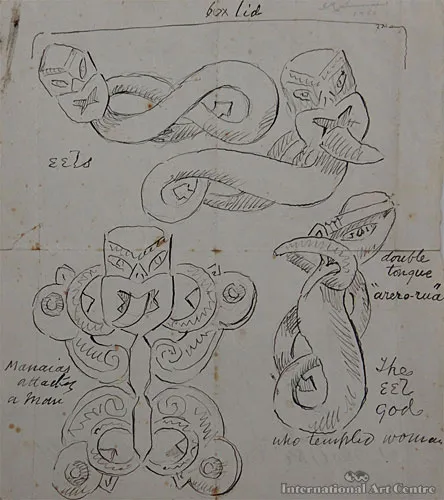 box lid
eels
double
tongue
"arero-rua"
Manaias
attacking
a man
The
EEl
God.
who tempted woman
International Art Centre